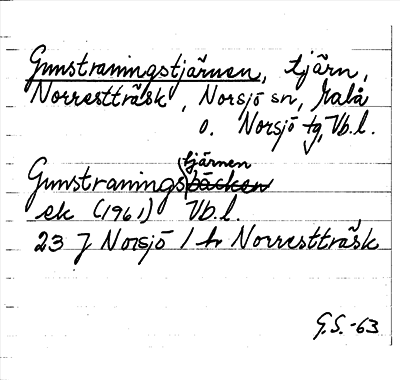 Gunstraningstjärnen, tjärn,
Norrestträsk, Norsjö sn, Malå
o. Norsjö tg, Vb.l.
tjärnen
Gunstranings bäcken
ek (1961) Vb.l.
23 J Norsjö 1 h Norrestträsk
G.S.-63